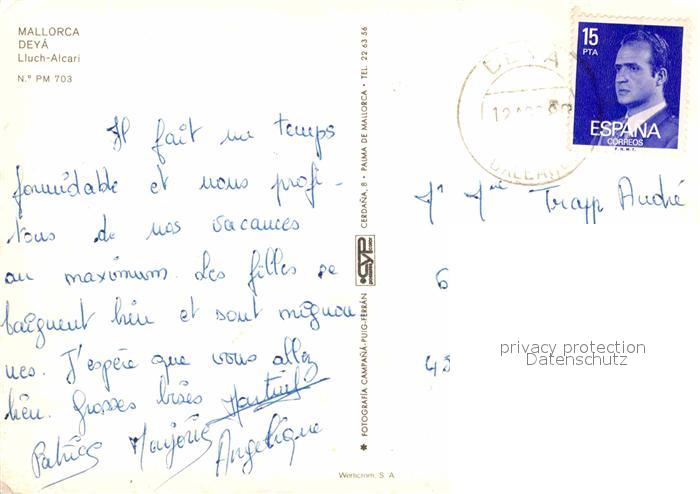 MALLORCA
DEYÁ
Lluch-Alcari
N.º PM 703
Il fait un temps
formidable et nous profi-
tons de nos vacances
au maximum. Les filles se
baignent bien et sont mignon
nes. J'espère que vous allez
bien. Grosses bises
Patrice Marjorie Angélique
✱ FOTOGRAFÍA CAMPAÑÀ-PUIG-FERRÁN
CYP
CERDAÑA, 8 • PALMA DE MALLORCA • TEL. 22 63 56
Werticrom, S. A.
DEYA
BALEARES
15
PTA
ESPAÑA
CORREOS
F.N.M.T.
Trapp André
6
privacy protection
Datenschutz